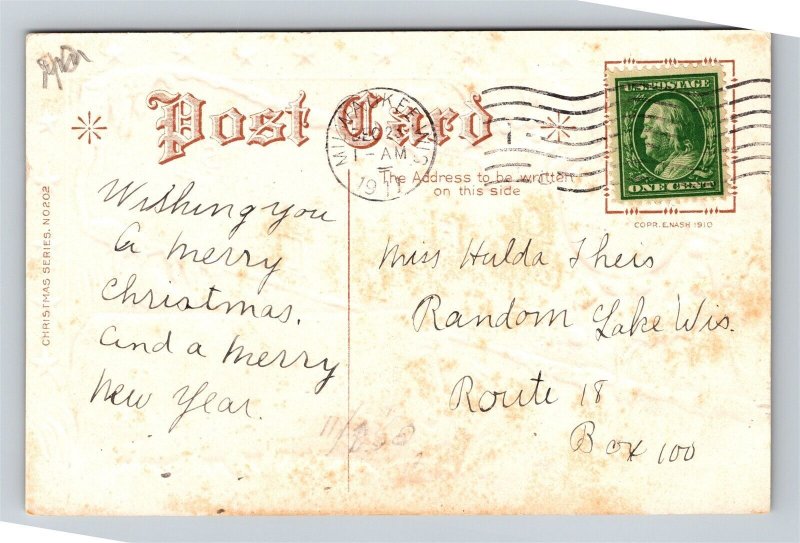 Post Card
MILWAUKEE, WIS
1 - AM
1911
U.S. POSTAGE
ONE CENT
The Address to be written
on this side
COPR. E. NASH 1910
CHRISTMAS SERIES. NO 202
Wishing you
a merry
Christmas.
and a merry
new year.
Miss Hulda Theis
Random Lake Wis.
Route 18
Box 100